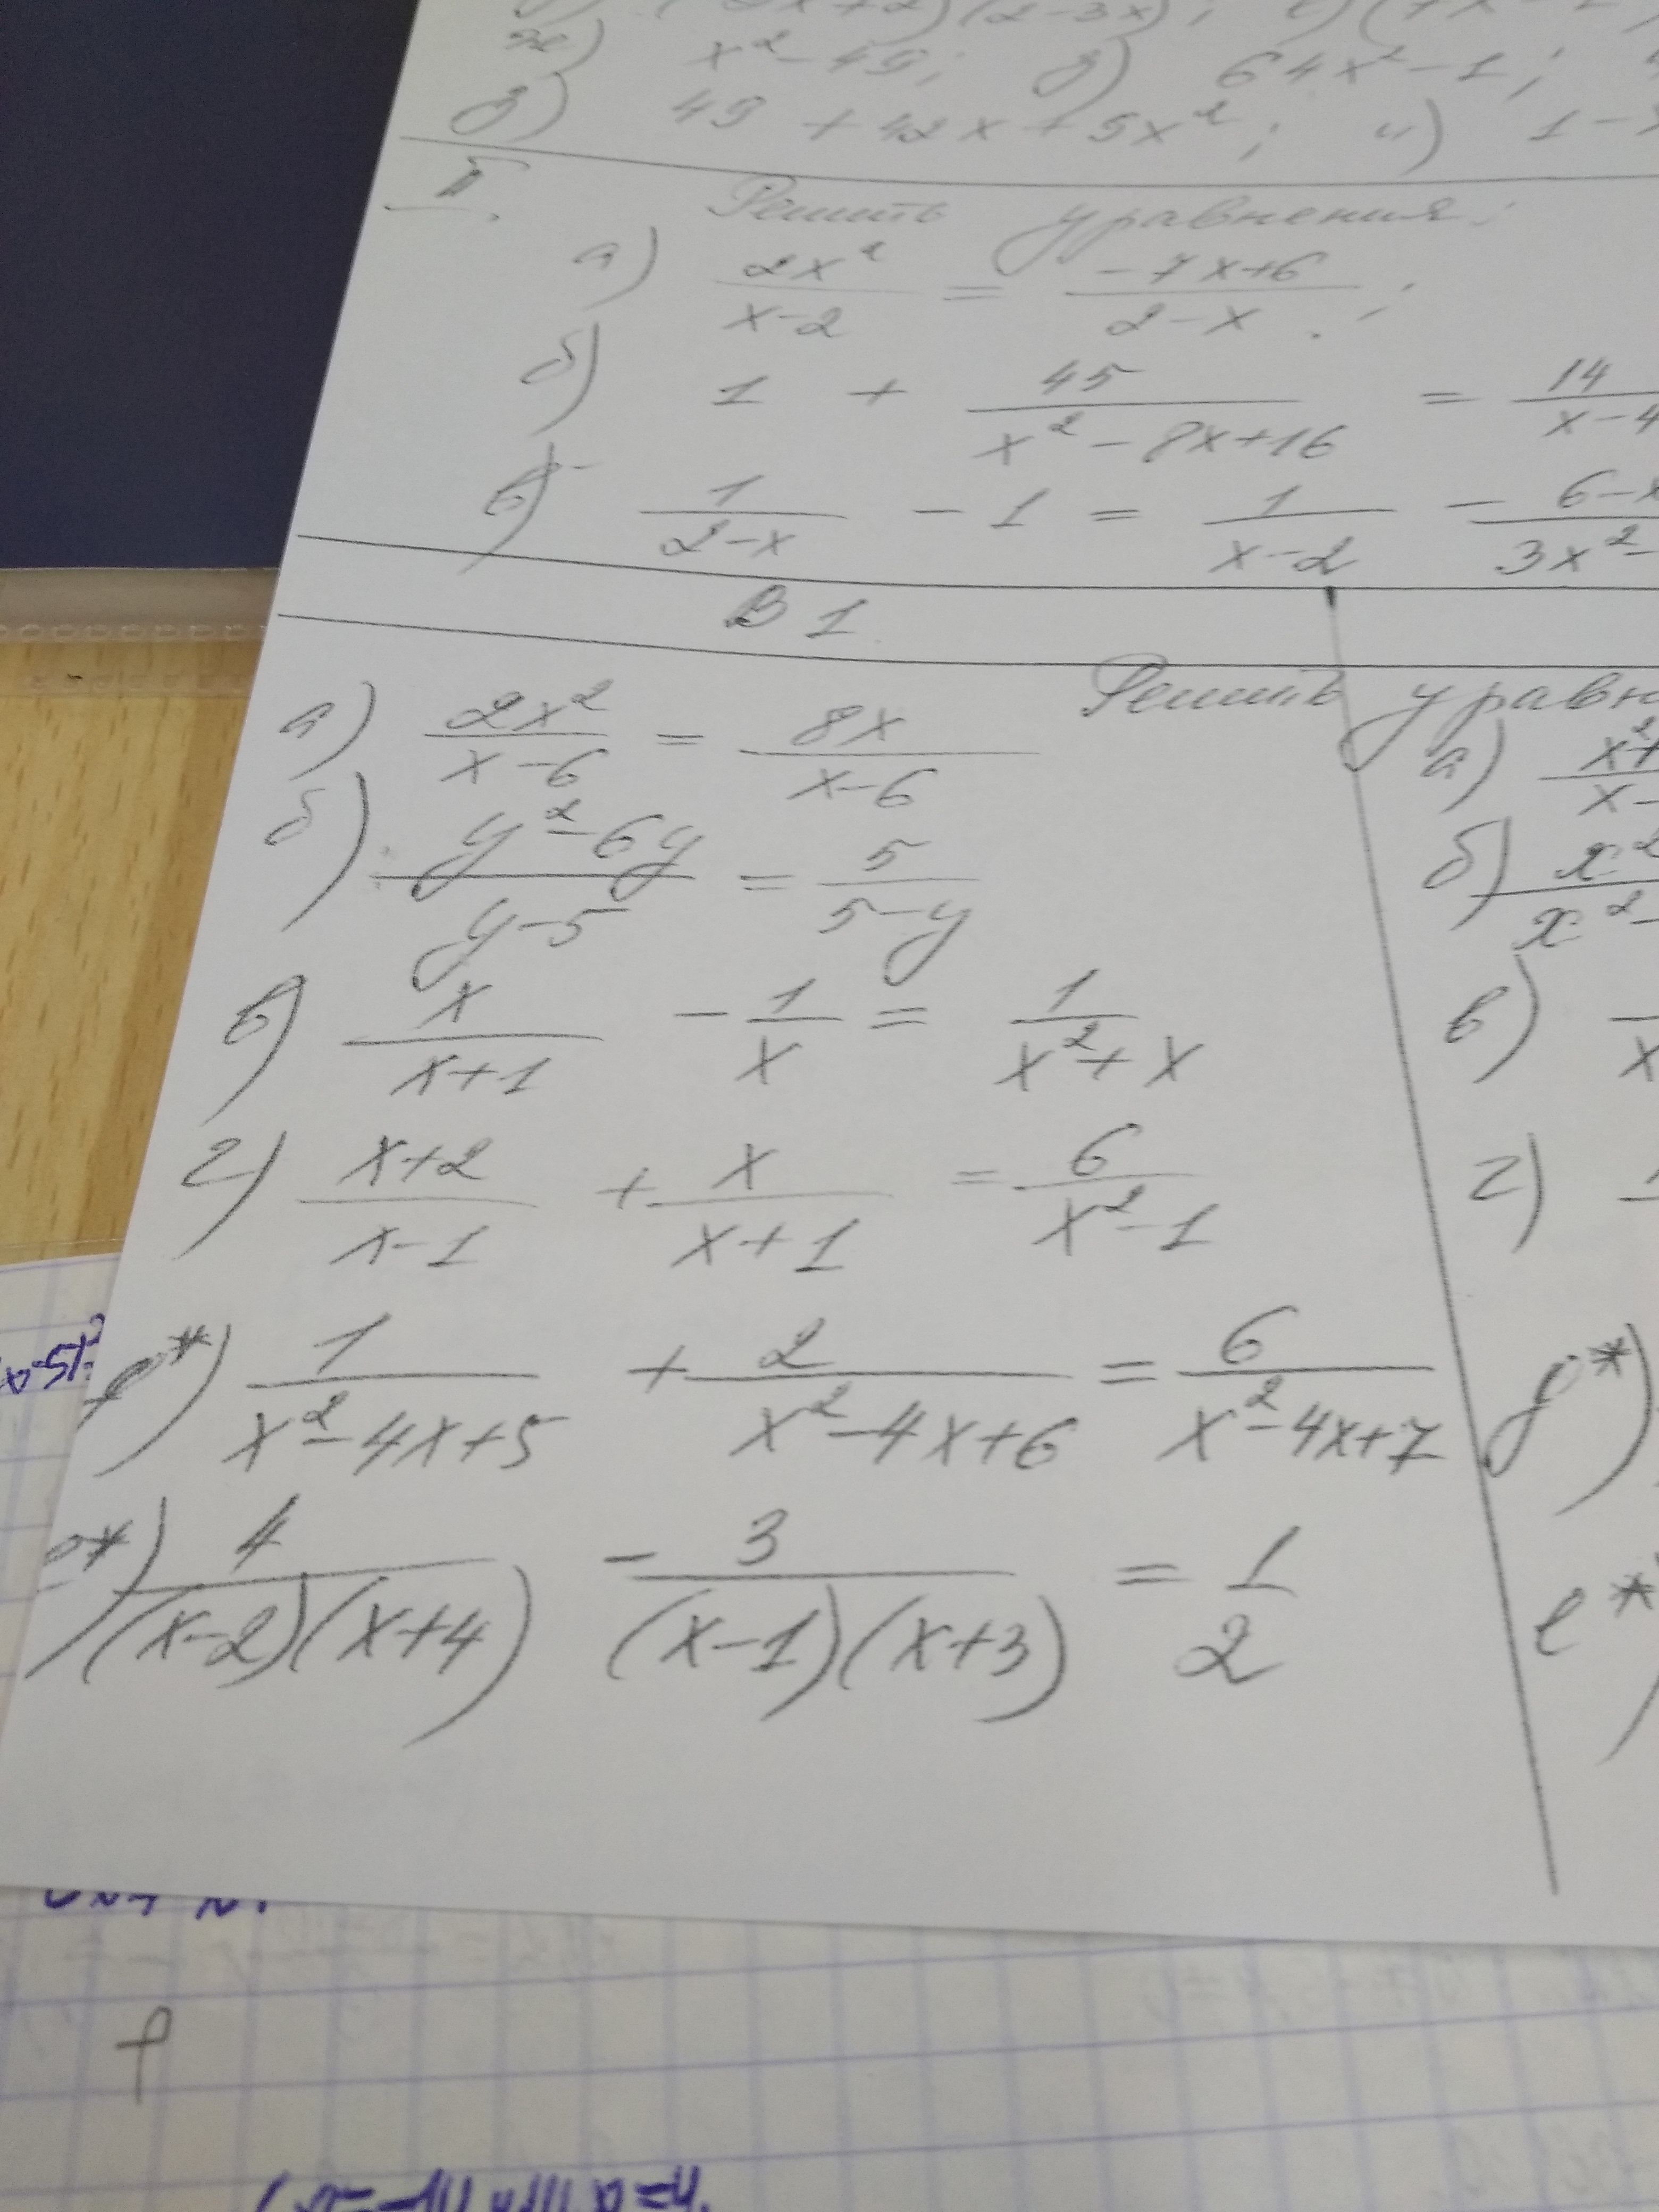 ж) x²-49; д) 64x²-1;
з) 49+42x+5x²; и) 1-
II. Решить уравнения:
а) 2x²/(x-2) = (-7x+6)/(2-x);
б) 1 + 45/(x²-8x+16) = 14/(x-4
в) 1/(2-x) - 1 = 1/(x-2) - (6-x)/(3x²-
В 1
Решить уравн
а) 2x²/(x-6) = 8x/(x-6)
б) (y²-6y)/(y-5) = 5/(5-y)
в) x/(x+1) - 1/x = 1/(x²+x)
г) (x+2)/(x-1) + x/(x+1) = 6/(x²-1)
д*) 1/(x²-4x+5) + 2/(x²-4x+6) = 6/(x²-4x+7)
е*) 4/((x-2)(x+4)) - 3/((x-1)(x+3)) = 1/2
а) x²+
x-
б) x²
x²-
в)
x
г)
д*)
е*)